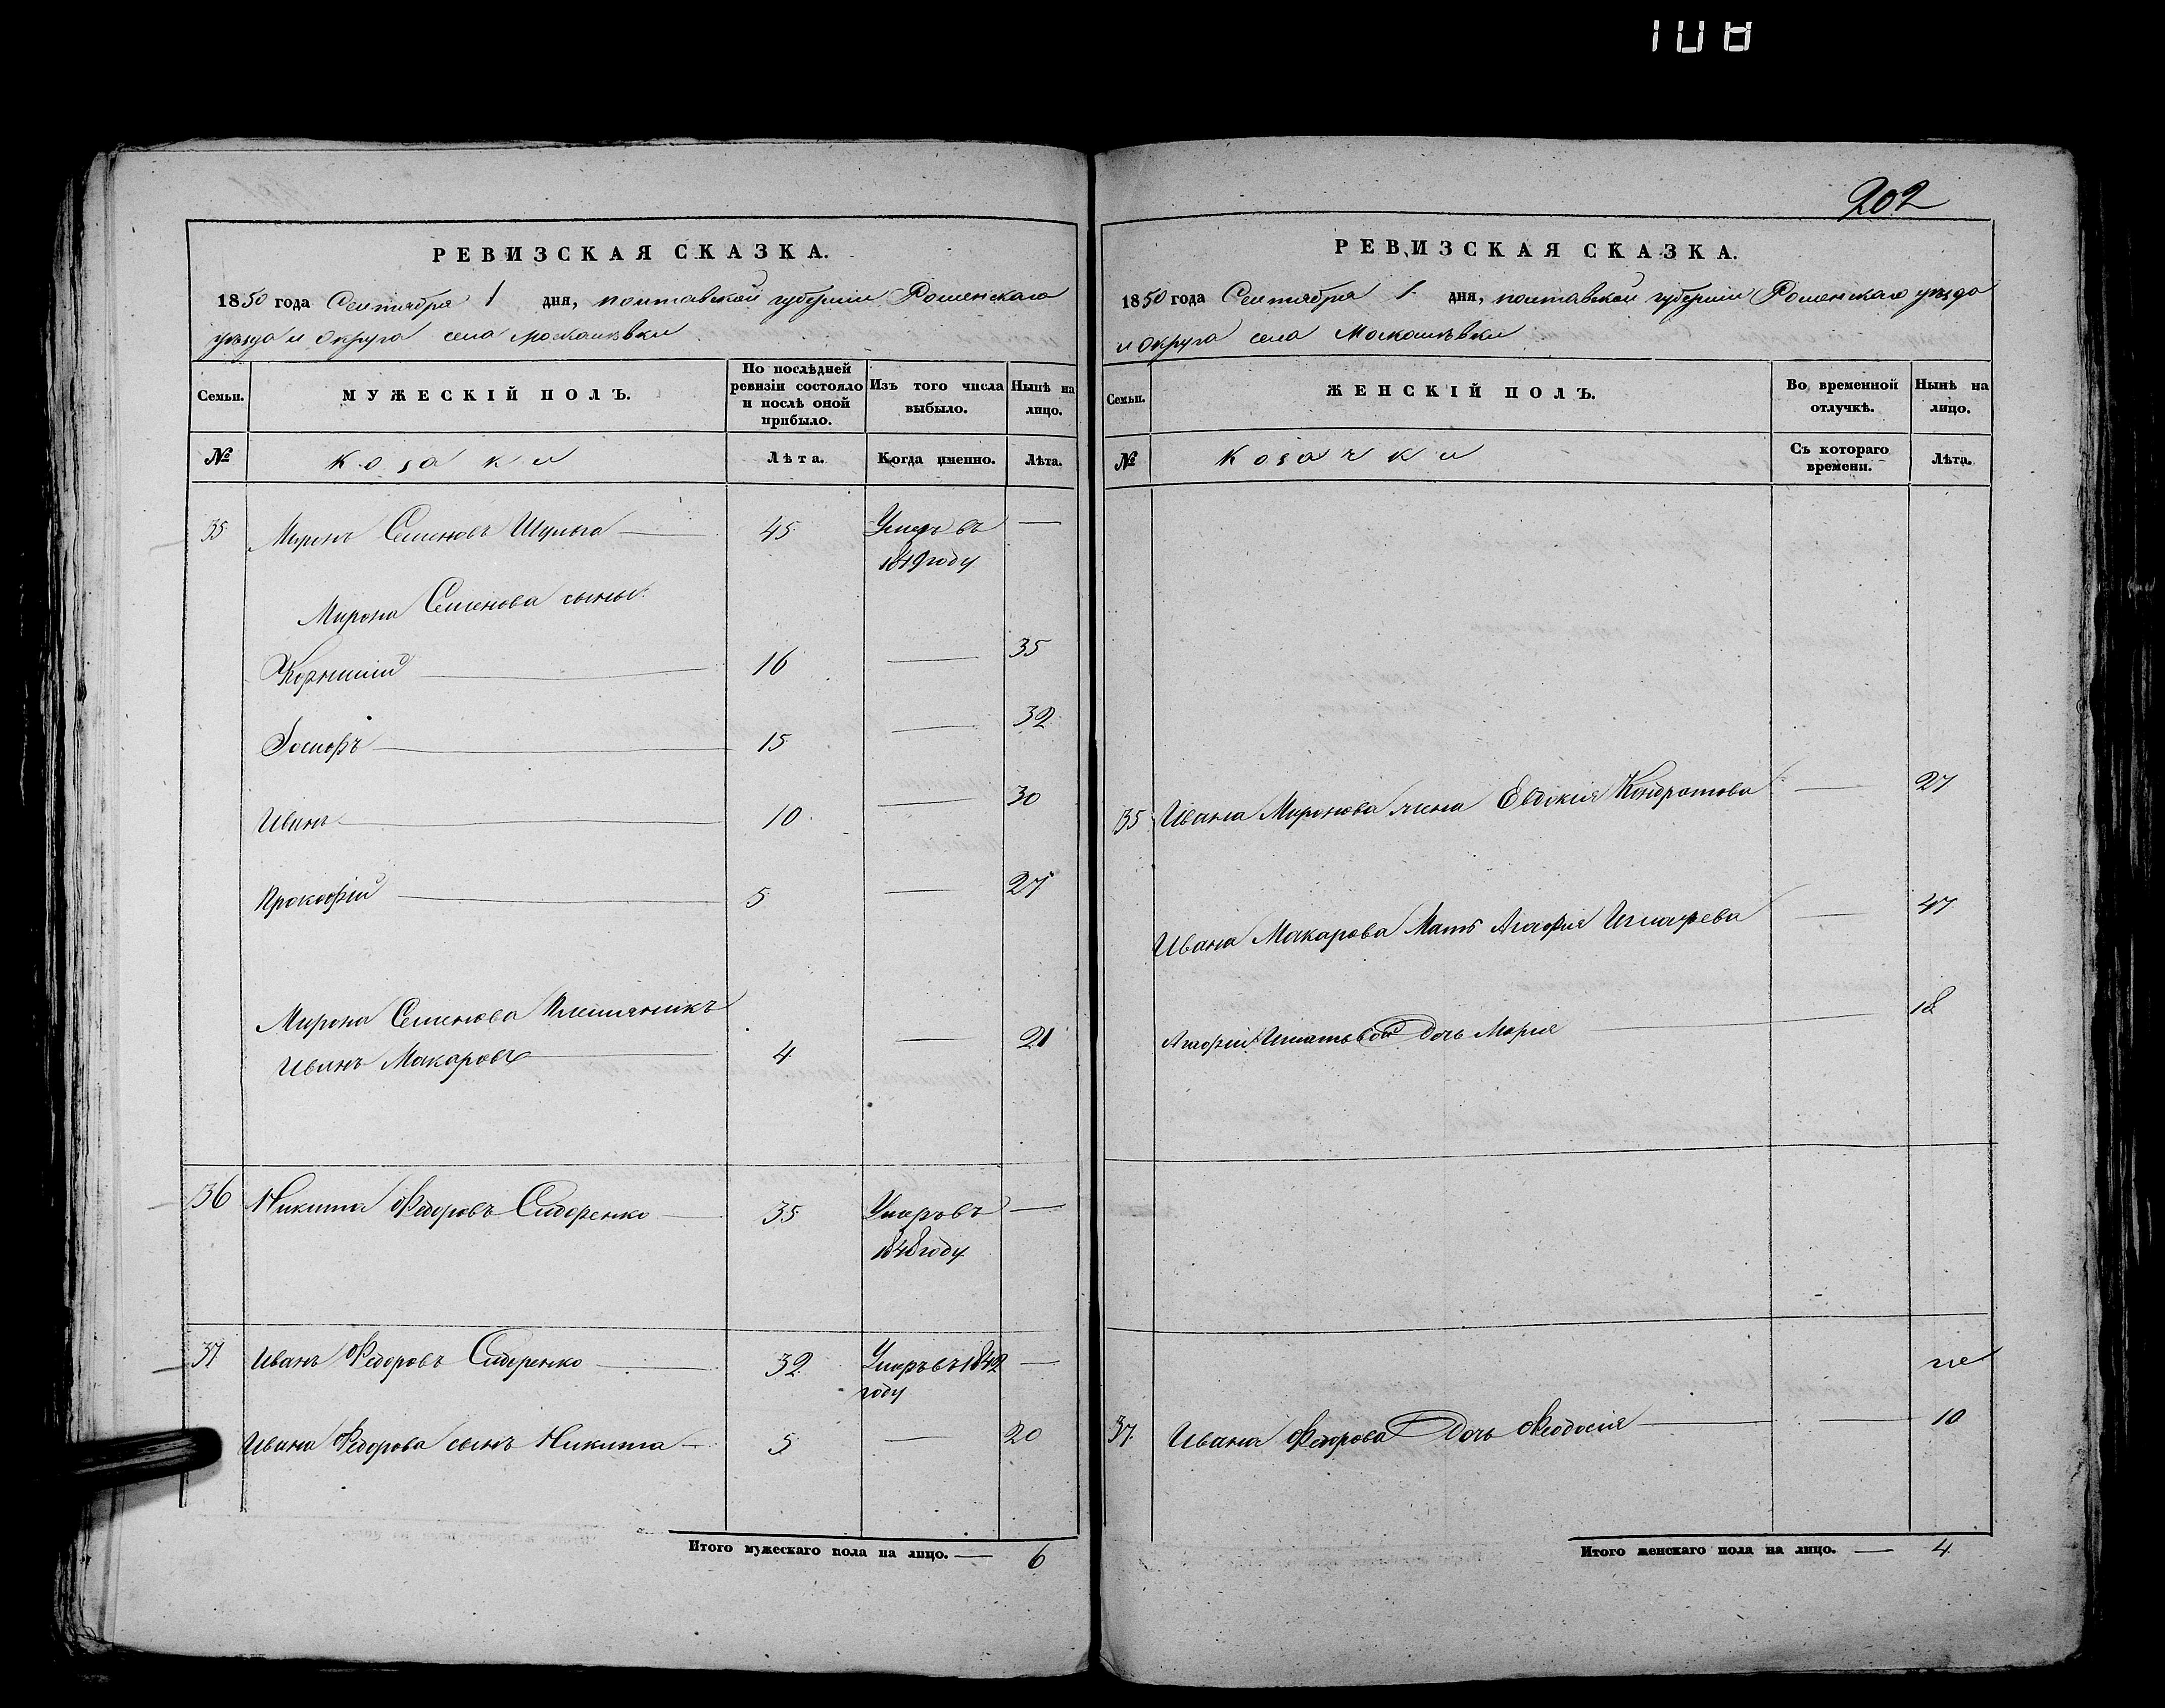 108
202
РЕВИЗСКАЯ СКАЗКА.
1850 года Сентября 1 дня, полтавской губернии Роменскаго
уезда и округа села москалѣвки
Семьи.
МУЖЕСКІЙ ПОЛЪ.
По послѣдней ревизіи состояло и послѣ оной прибыло.
Изъ того числа выбыло.
Нынѣ на лицо.
№
Козаки
Лѣта.
Когда именно.
Лѣта.
35 Миронъ Семеновъ Шульга — 45 Умеръ въ —
1849 году
Мирона Семенова сыны:
Корнилій — 16 — 35
Іосифъ — 15 — 32
Иванъ — 10 — 30
Прокофій — 5 — 27
Мирона Семенова племянникъ
Иванъ Макаровъ — 4 — 21
36 Никита Федоровъ Сидоренко — 35 Умеръ въ —
1848 году
37 Иванъ Федоровъ Сидоренко — 32 Умеръ въ 1842 —
году
Ивана Федорова сынъ Никита — 5 — 20
Итого мужескаго пола на лицо. — 6
РЕВИЗСКАЯ СКАЗКА.
1850 года Сентября 1 дня, полтавской губерніи Роменскаго уезда
и округа села Москалѣвки
Семьи.
ЖЕНСКІЙ ПОЛЪ.
Во временной отлучкѣ.
Нынѣ на лицо.
№
Козачки
Съ котораго времени.
Лѣта.
35 Ивана Миронова жена Евдокия Кондратова — 27
Ивана Макарова Мать Агафия Игнатьева — 47
Агафии Игнатьевой Дочь Мария — 18
37 Ивана Федорова Дочь Феодосия — — 10
Итого женскаго пола на лицо. — 4